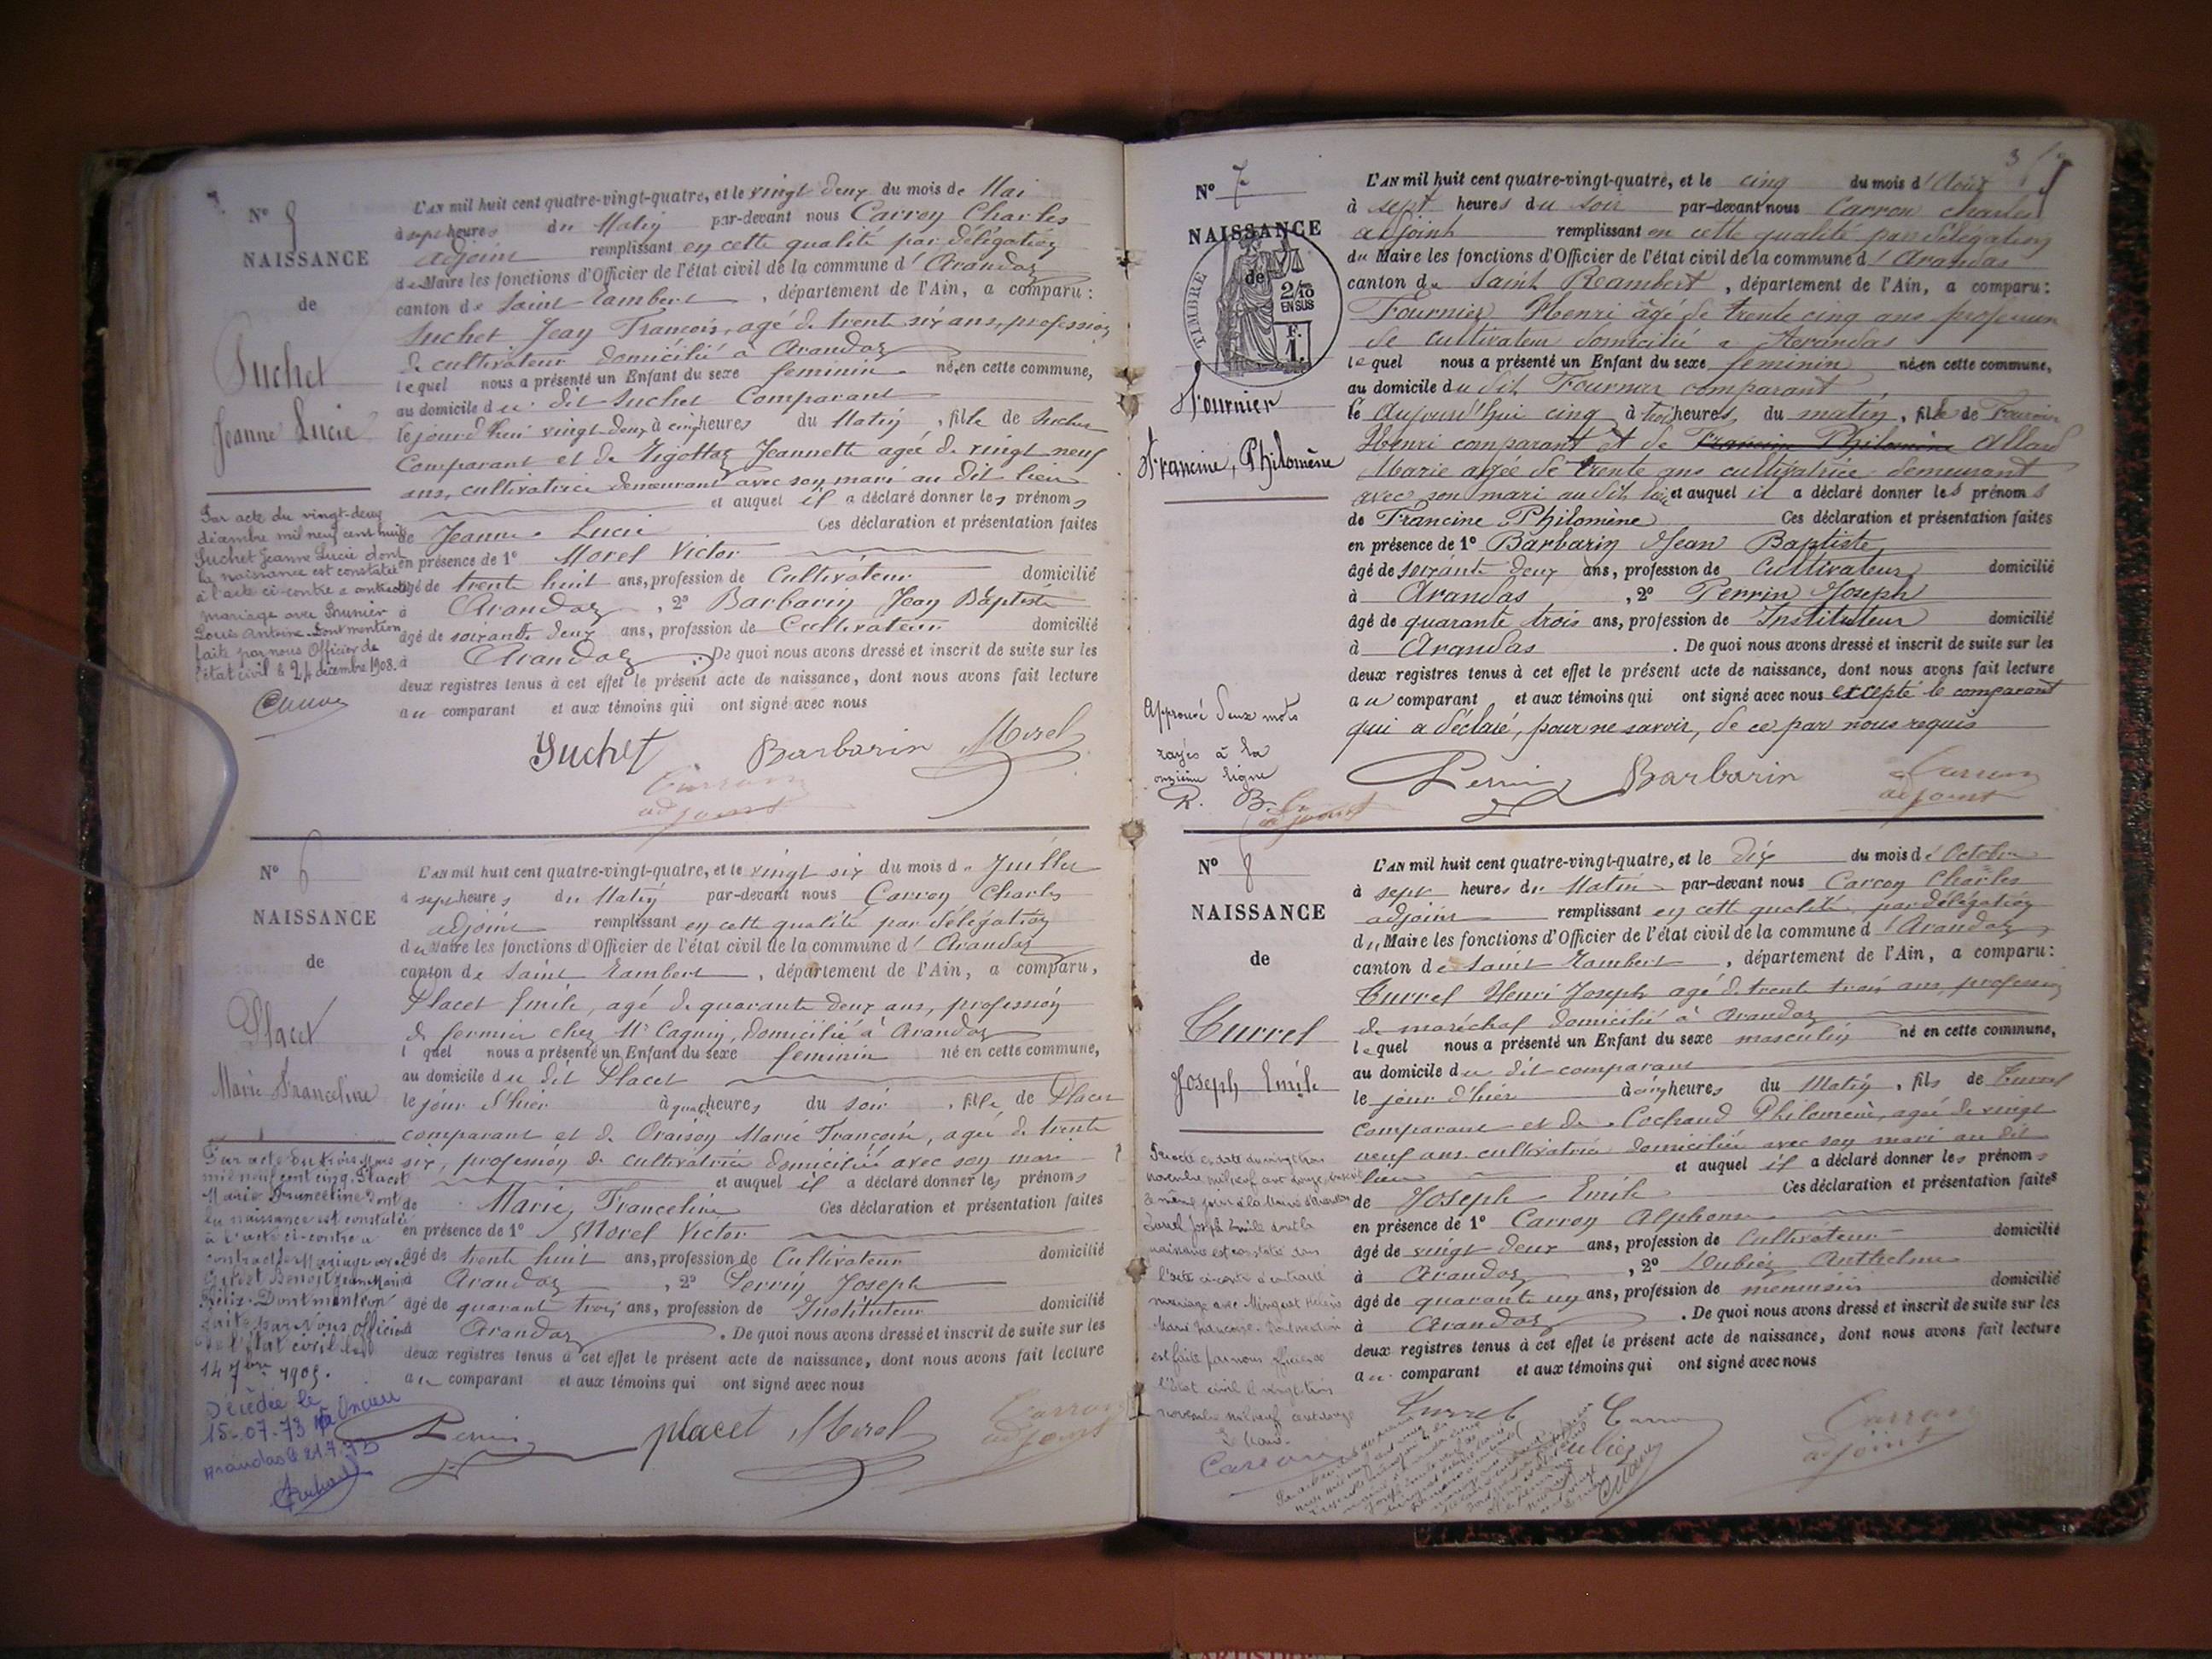 N° 5
NAISSANCE
de
Suchet
Jeanne Lucie
L'AN mil huit cent quatre-vingt-quatre, et le vingt deux du mois de Mai
à sept heures du Matin par-devant nous Carron Charles
adjoint remplissant en cette qualité par délégation
du Maire les fonctions d'Officier de l'état civil de la commune d' Arandas
canton de Saint Rambert, département de l'Ain, a comparu :
Suchet Jean François, agé de trente six ans, profession
de cultivateur domicilié à Arandas
lequel nous a présenté un Enfant du sexe feminin né en cette commune,
au domicile du dit Suchet Comparant
le jourd'hui vingt-deux à cinq heures du Matin, fille de Suchet
Comparant et de Jeannette agée de vingt neuf
ans, cultivatrice demeurant avec son mari au dit lieu
et auquel il a déclaré donner les prénoms
de Jeanne Lucie Ces déclaration et présentation faites
en présence de 1° Morel Victor
âgé de trente huit ans, profession de Cultivateur domicilié
à Arandas, 2° Barbarin Jean Baptiste
âgé de soixante deux ans, profession de Cultivateur domicilié
à Arandas. De quoi nous avons dressé et inscrit de suite sur les
deux registres tenus à cet effet le présent acte de naissance, dont nous avons fait lecture
au comparant et aux témoins qui ont signé avec nous
Par acte du vingt-deux
décembre mil neuf cent huit
Suchet Jeanne Lucie dont
la naissance est constatée
à l'acte ci-contre a contracté
mariage avec Brunier
Louis Antoine. Dont mention
faite par nous Officier de
l'état civil le 24 décembre 1908.
Suchet Barbarin Morel
Carron
adjoint
N° 6
NAISSANCE
de
Placet
Marie Franceline
L'AN mil huit cent quatre-vingt-quatre, et le vingt six du mois de Juillet
à sept heures du Matin par-devant nous Carron Charles
adjoint remplissant en cette qualité par délégation
du Maire les fonctions d'Officier de l'état civil de la commune d' Arandas
canton de Saint Rambert, département de l'Ain, a comparu,
Placet Emile, agé de quarante deux ans, profession
de fermier chez Mr Cagnin, domicilié à Arandas
lequel nous a présenté un Enfant du sexe feminin né en cette commune,
au domicile du dit Placet
le jour d'hier à quatre heures du soir, fille de Placet
comparant et de Oraison Marie Françoise, agée de trente
six, profession de cultivatrice domiciliée avec son mari
et auquel il a déclaré donner les prénoms
de Marie, Franceline Ces déclaration et présentation faites
en présence de 1° Morel Victor
âgé de trente huit ans, profession de Cultivateur domicilié
à Arandas, 2° Perrin Joseph
âgé de quarante trois ans, profession de Instituteur domicilié
à Arandas. De quoi nous avons dressé et inscrit de suite sur les
deux registres tenus à cet effet le présent acte de naissance, dont nous avons fait lecture
au comparant et aux témoins qui ont signé avec nous
Par acte du trois Mars
mil neuf cent cinq, Placet
Marie Franceline dont
la naissance est constatée
à l'acte ci-contre a
contracté Mariage avec
Benoit Jean Marie
Félix. Dont mention
faite par Nous officier
de l'Etat civil le
14 7bre 1905.
Décédée le
15-07-73 à Oncieu
Arandas le 21.7.73
Perrin placet Morel
Carron
adjoint
3
N° 7
NAISSANCE
de
TIMBRE
2/10
EN SUS
F.
1.
Fournier
Francine, Philomène
L'AN mil huit cent quatre-vingt-quatre, et le cinq du mois d'Août
à sept heures du soir par-devant nous Carron Charles
adjoint remplissant en cette qualité par délégation
du Maire les fonctions d'Officier de l'état civil de la commune d' Arandas
canton de Saint Rambert, département de l'Ain, a comparu :
Fournier Henri âgé de trente cinq ans profession
de cultivateur domicilié a Arandas
lequel nous a présenté un Enfant du sexe feminin né en cette commune,
au domicile du dit Fournier comparant
le Aujourd'hui cinq à trois heures du matin, fille de Fournier
Henri comparant et de Francine Philomène Allard
Marie agée de trente ans cultivatrice demeurant
avec son mari au dit lieu et auquel il a déclaré donner les prénoms
de Francine Philomène Ces déclaration et présentation faites
en présence de 1° Barbarin Jean Baptiste
âgé de soixante deux ans, profession de Cultivateur domicilié
à Arandas, 2° Perrin Joseph
âgé de quarante trois ans, profession de Instituteur domicilié
à Arandas. De quoi nous avons dressé et inscrit de suite sur les
deux registres tenus à cet effet le présent acte de naissance, dont nous avons fait lecture
au comparant et aux témoins qui ont signé avec nous excepté le comparant
qui a déclaré, pour ne savoir, de ce par nous requis
Approuvé deux mots
rayés à la
onzième ligne
P. B. C.
adjoint
Perrin Barbarin Carron
adjoint
N° 8
NAISSANCE
de
Turrel
Joseph Emile
L'AN mil huit cent quatre-vingt-quatre, et le dix du mois d'Octobre
à sept heures du Matin par-devant nous Carron Charles
adjoint remplissant en cette qualité par délégation
du Maire les fonctions d'Officier de l'état civil de la commune d' Arandas
canton de Saint Rambert, département de l'Ain, a comparu :
Turrel Henri Joseph agé de trente trois ans, profession
de maréchal domicilié à Arandas
lequel nous a présenté un Enfant du sexe masculin né en cette commune,
au domicile du dit comparant
le jour d'hier à onze heures du Matin, fils de Turrel
Comparant et de Cochand Philomène, agée de vingt
neuf ans cultivatrice domiciliée avec son mari au dit
lieu et auquel il a déclaré donner les prénoms
de Joseph Emile Ces déclaration et présentation faites
en présence de 1° Carron Alphonse
âgé de vingt deux ans, profession de Cultivateur domicilié
à Arandas, 2° Dubiez Anthelme
âgé de quarante un ans, profession de menuisier domicilié
à Arandas. De quoi nous avons dressé et inscrit de suite sur les
deux registres tenus à cet effet le présent acte de naissance, dont nous avons fait lecture
au comparant et aux témoins qui ont signé avec nous
Par acte en date du vingt trois
novembre mil neuf cent douze, inscrit
le même jour à la Mairie d'Arandas
Turrel Joseph Emile dont la
naissance est constatée dans
l'acte ci-contre a contracté
mariage avec Hélène
Marie Françoise. Dont mention
est faite par nous officier de
l'état civil le vingt trois
novembre mil neuf cent douze
Le Maire
Carron
Turrel Carron
Dubiez
Carron
adjoint